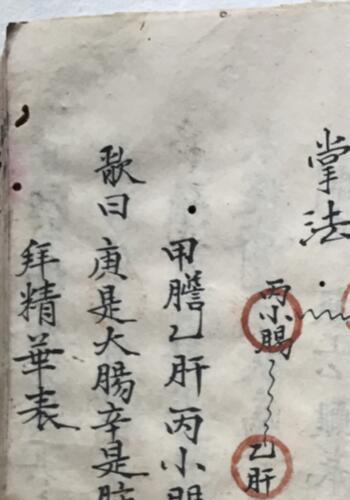 掌法
丙小腸
乙肝
甲膽乙肝丙小腸
歌曰庚是大腸辛是肺
拜精華表